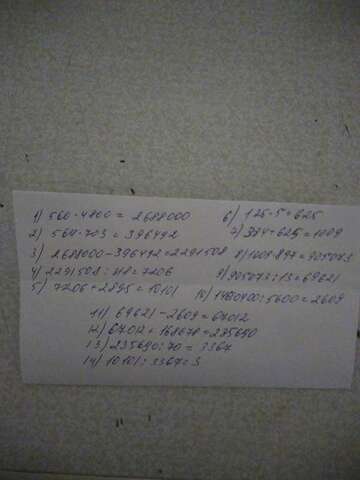 1) 560·4800 = 2688000
6) 125·5=625
2) 564·703 = 396492
7) 384+625=1009
3) 2688000-396492=2291508
8) 1009·897=905073
4) 2291508:318=7206
9) 905073:13=69621
5) 7206+2895=10101
10) 14610400:5600=2609
11) 69621-2609=67012
12) 67012+168678=235690
13) 235690:70=3367
14) 10101:3367=3